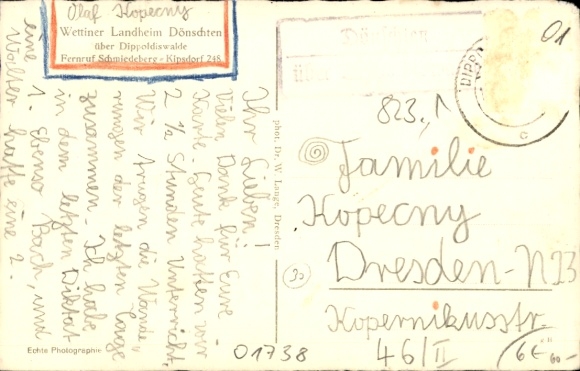 Olaf Kopecny
Wettiner Landheim Dönschten
über Dippoldiswalde
Fernruf Schmiedeberg-Kipsdorf 248
Ihr Lieben!
Vielen Dank für Eure
Karte. Heute hatten wir
2 1/2 Stunden Unterricht.
Wir trugen die Wande„
rungen der letzten Tage
zusammen. Ich habe
in dem letzten Diktat
1. Ebenso Bach, und
Wolter hatte eine 2.
eine
Echte Photographie
phot. Dr. W. Lange, Dresden
Dönschten
über
DIPPOLDIS
c
01
823, 1
Familie
Kopecny
Dresden-N23
Kopernikusstr
46/II
20
01738
6E
60.-